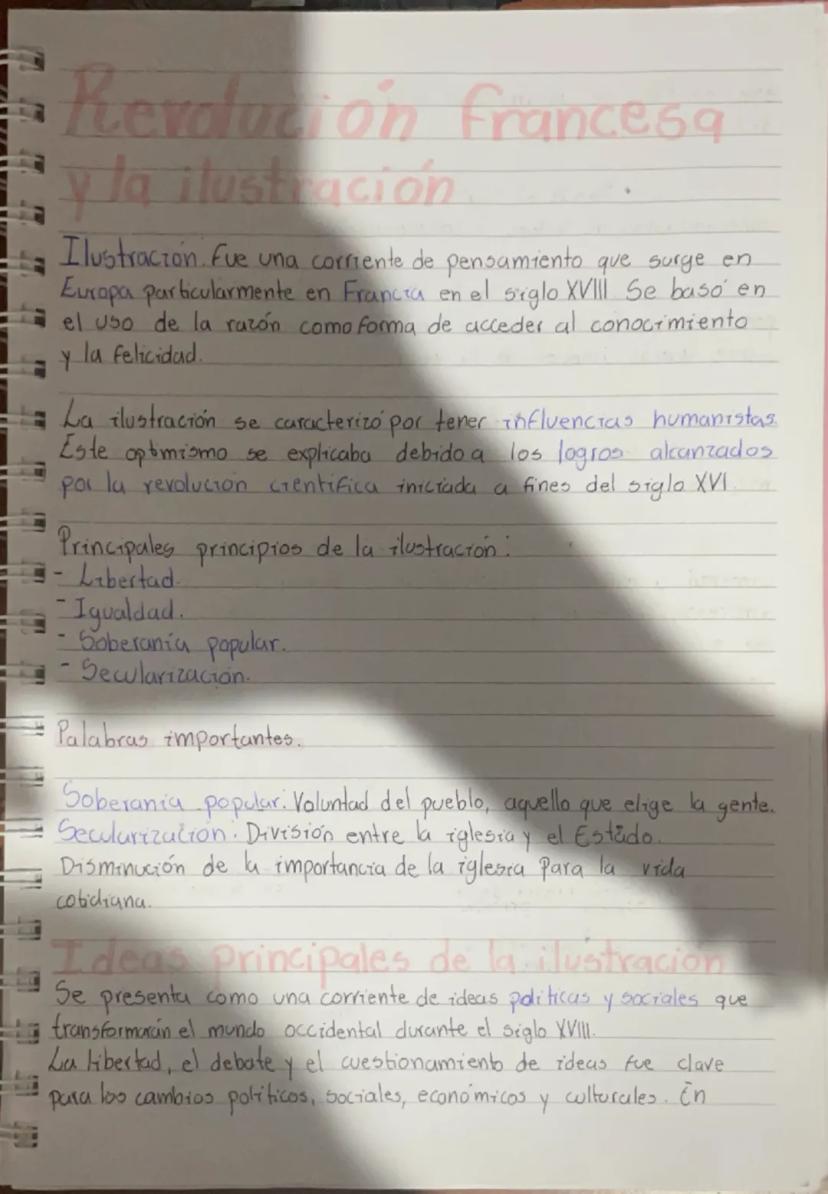 Revolución francesa
y la ilustración
Ilustración. Fue una corriente de pensamiento que surge en
Europa particularmente en Francia en el siglo XVIII Se basó en
el uso de la razón como forma de acceder al conocimiento
y la felicidad.
La ilustración se caracterizó por tener influencias humanistas.
Este optimismo se explicaba debido a los logros alcanzados
por la revolución científica iniciada a fines del siglo XVI.
Principales principios de la ilustración:
- Libertad.
- Igualdad.
- Soberanía popular.
- Secularización.
Palabras importantes.
Soberanía popular. Voluntad del pueblo, aquello que elige la gente.
Secularización. División entre la iglesia y el Estado.
Disminución de la importancia de la iglesia para la vida
cotidiana.
Ideas principales de la ilustración
Se presenta como una corriente de ideas políticas y sociales que
transformarán el mundo occidental durante el siglo XVIII.
La libertad, el debate y el cuestionamiento de ideas fue clave
para los cambios políticos, sociales, económicos y culturales. En